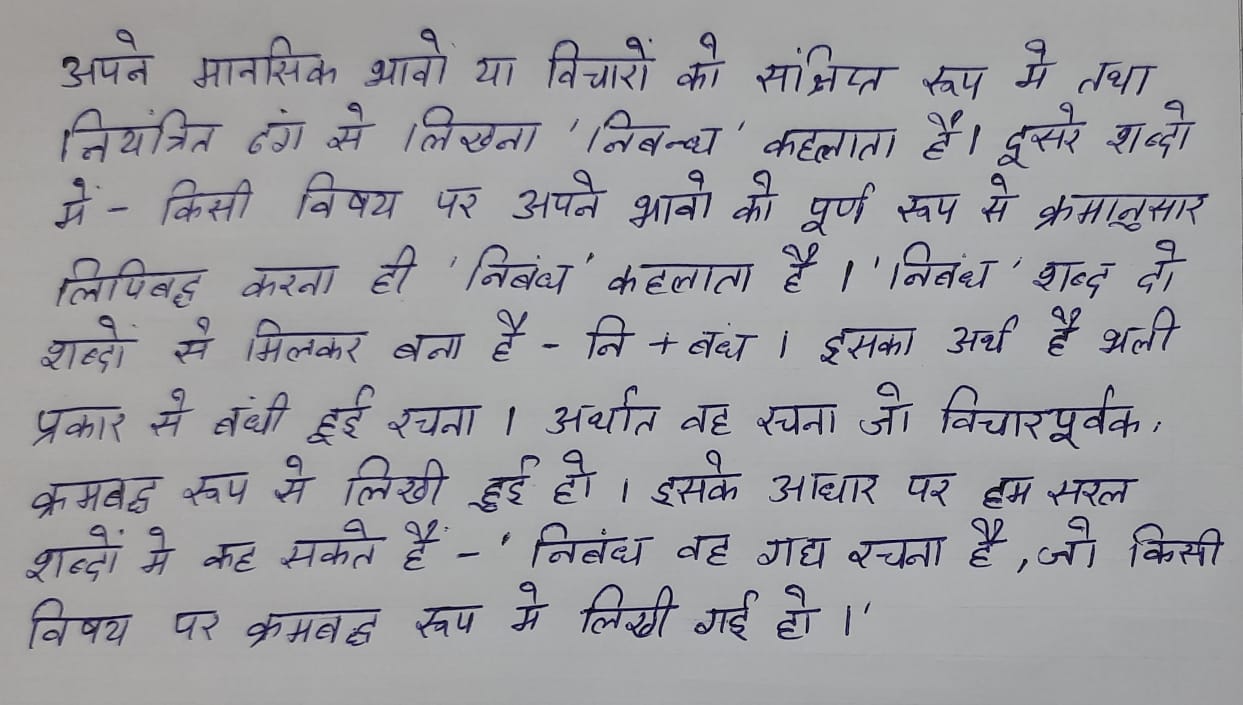 अपने मानसिक भावों या विचारों को संक्षिप्त रूप मे तथा
नियंत्रित ढंग से लिखना 'निबन्ध' कहलाता है। दूसरे शब्दो
में - किसी विषय पर अपने भावो को पूर्ण रूप से क्रमानुसार
लिपिबद्ध करना ही 'निबंध' कहलाता है । 'निबंध' शब्द दो
शब्दों से मिलकर बना है - नि + बंध । इसका अर्थ है भली
प्रकार से बंधी हुई रचना । अर्थात वह रचना जो विचारपूर्वक,
क्रमबद्ध रूप से लिखी हुई हो । इसके आधार पर हम सरल
शब्दों मे कह सकते हैं - 'निबंध वह गद्य रचना है, जो किसी
विषय पर क्रमबद्ध रूप मे लिखी गई हो ।'